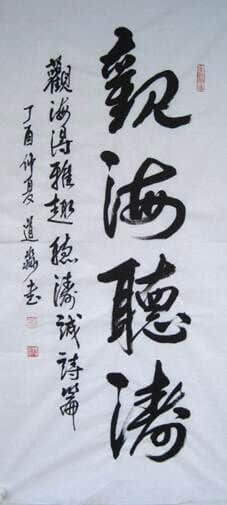 觀海聽濤
觀海得雅趣聽濤誠詩篇
丁酉仲夏道